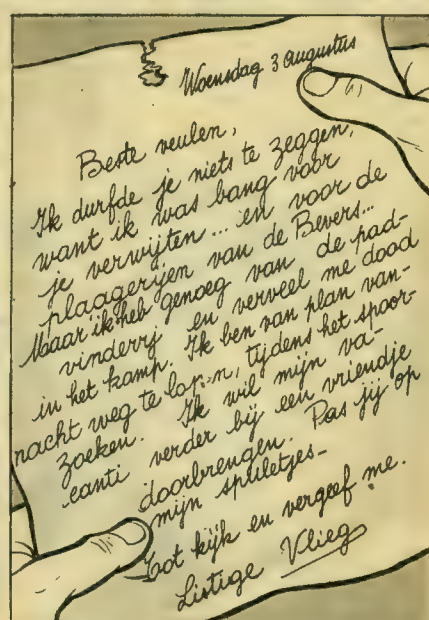 Woensdag 3 augustus
Beste veulen,
Ik durfde je niets te zeggen,
want ik was bang voor
je verwijten... en voor de
plaagerijen van de Bevers...
Maar ik heb genoeg van de pad-
vinderij en verveel me dood
in het kamp. Ik ben van plan van-
nacht weg te lopen, tijdens het spoor-
zoeken. Ik wil mijn va-
canti verder bij een vriendje
doorbrengen. Pas jij op
mijn spulletjes_
Tot kijk en vergeef me.
Listige Vlieg